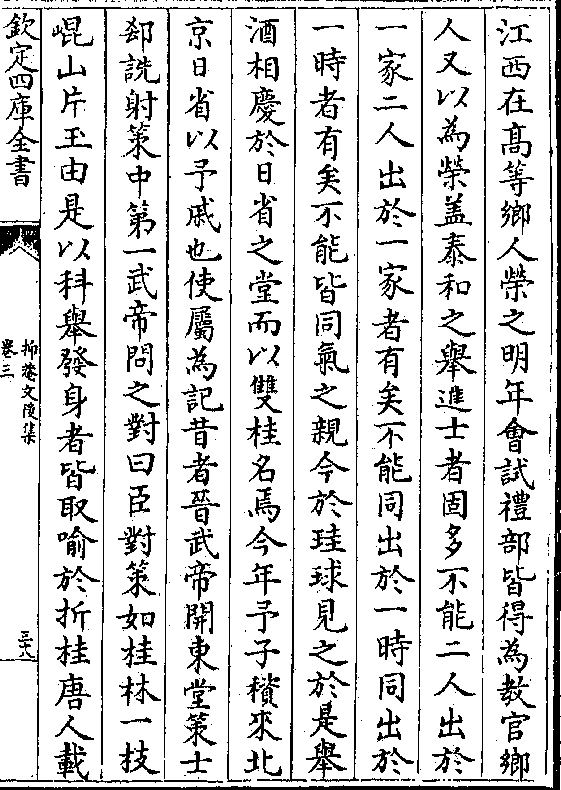 江西在髙等鄉人榮之明年會試禮部皆得為教官鄉
人又以為榮盖泰和之舉進士者固多不能二人出於
一家二人出於一家者有矣不能同出於一時同出於
一時者有矣不能皆同氣之親今於珪球見之於是舉
酒相慶於日省之堂而以雙桂名焉今年予子稹來北
京日省以予戚也使屬為記昔者晉武帝開東堂策士
郄詵射策中第一武帝問之對曰臣對策如桂林一枝
崐山片玉由是以科舉發身者皆取喻於折桂唐人載
欽定四庫全書
抑菴文後集
卷三
三十八